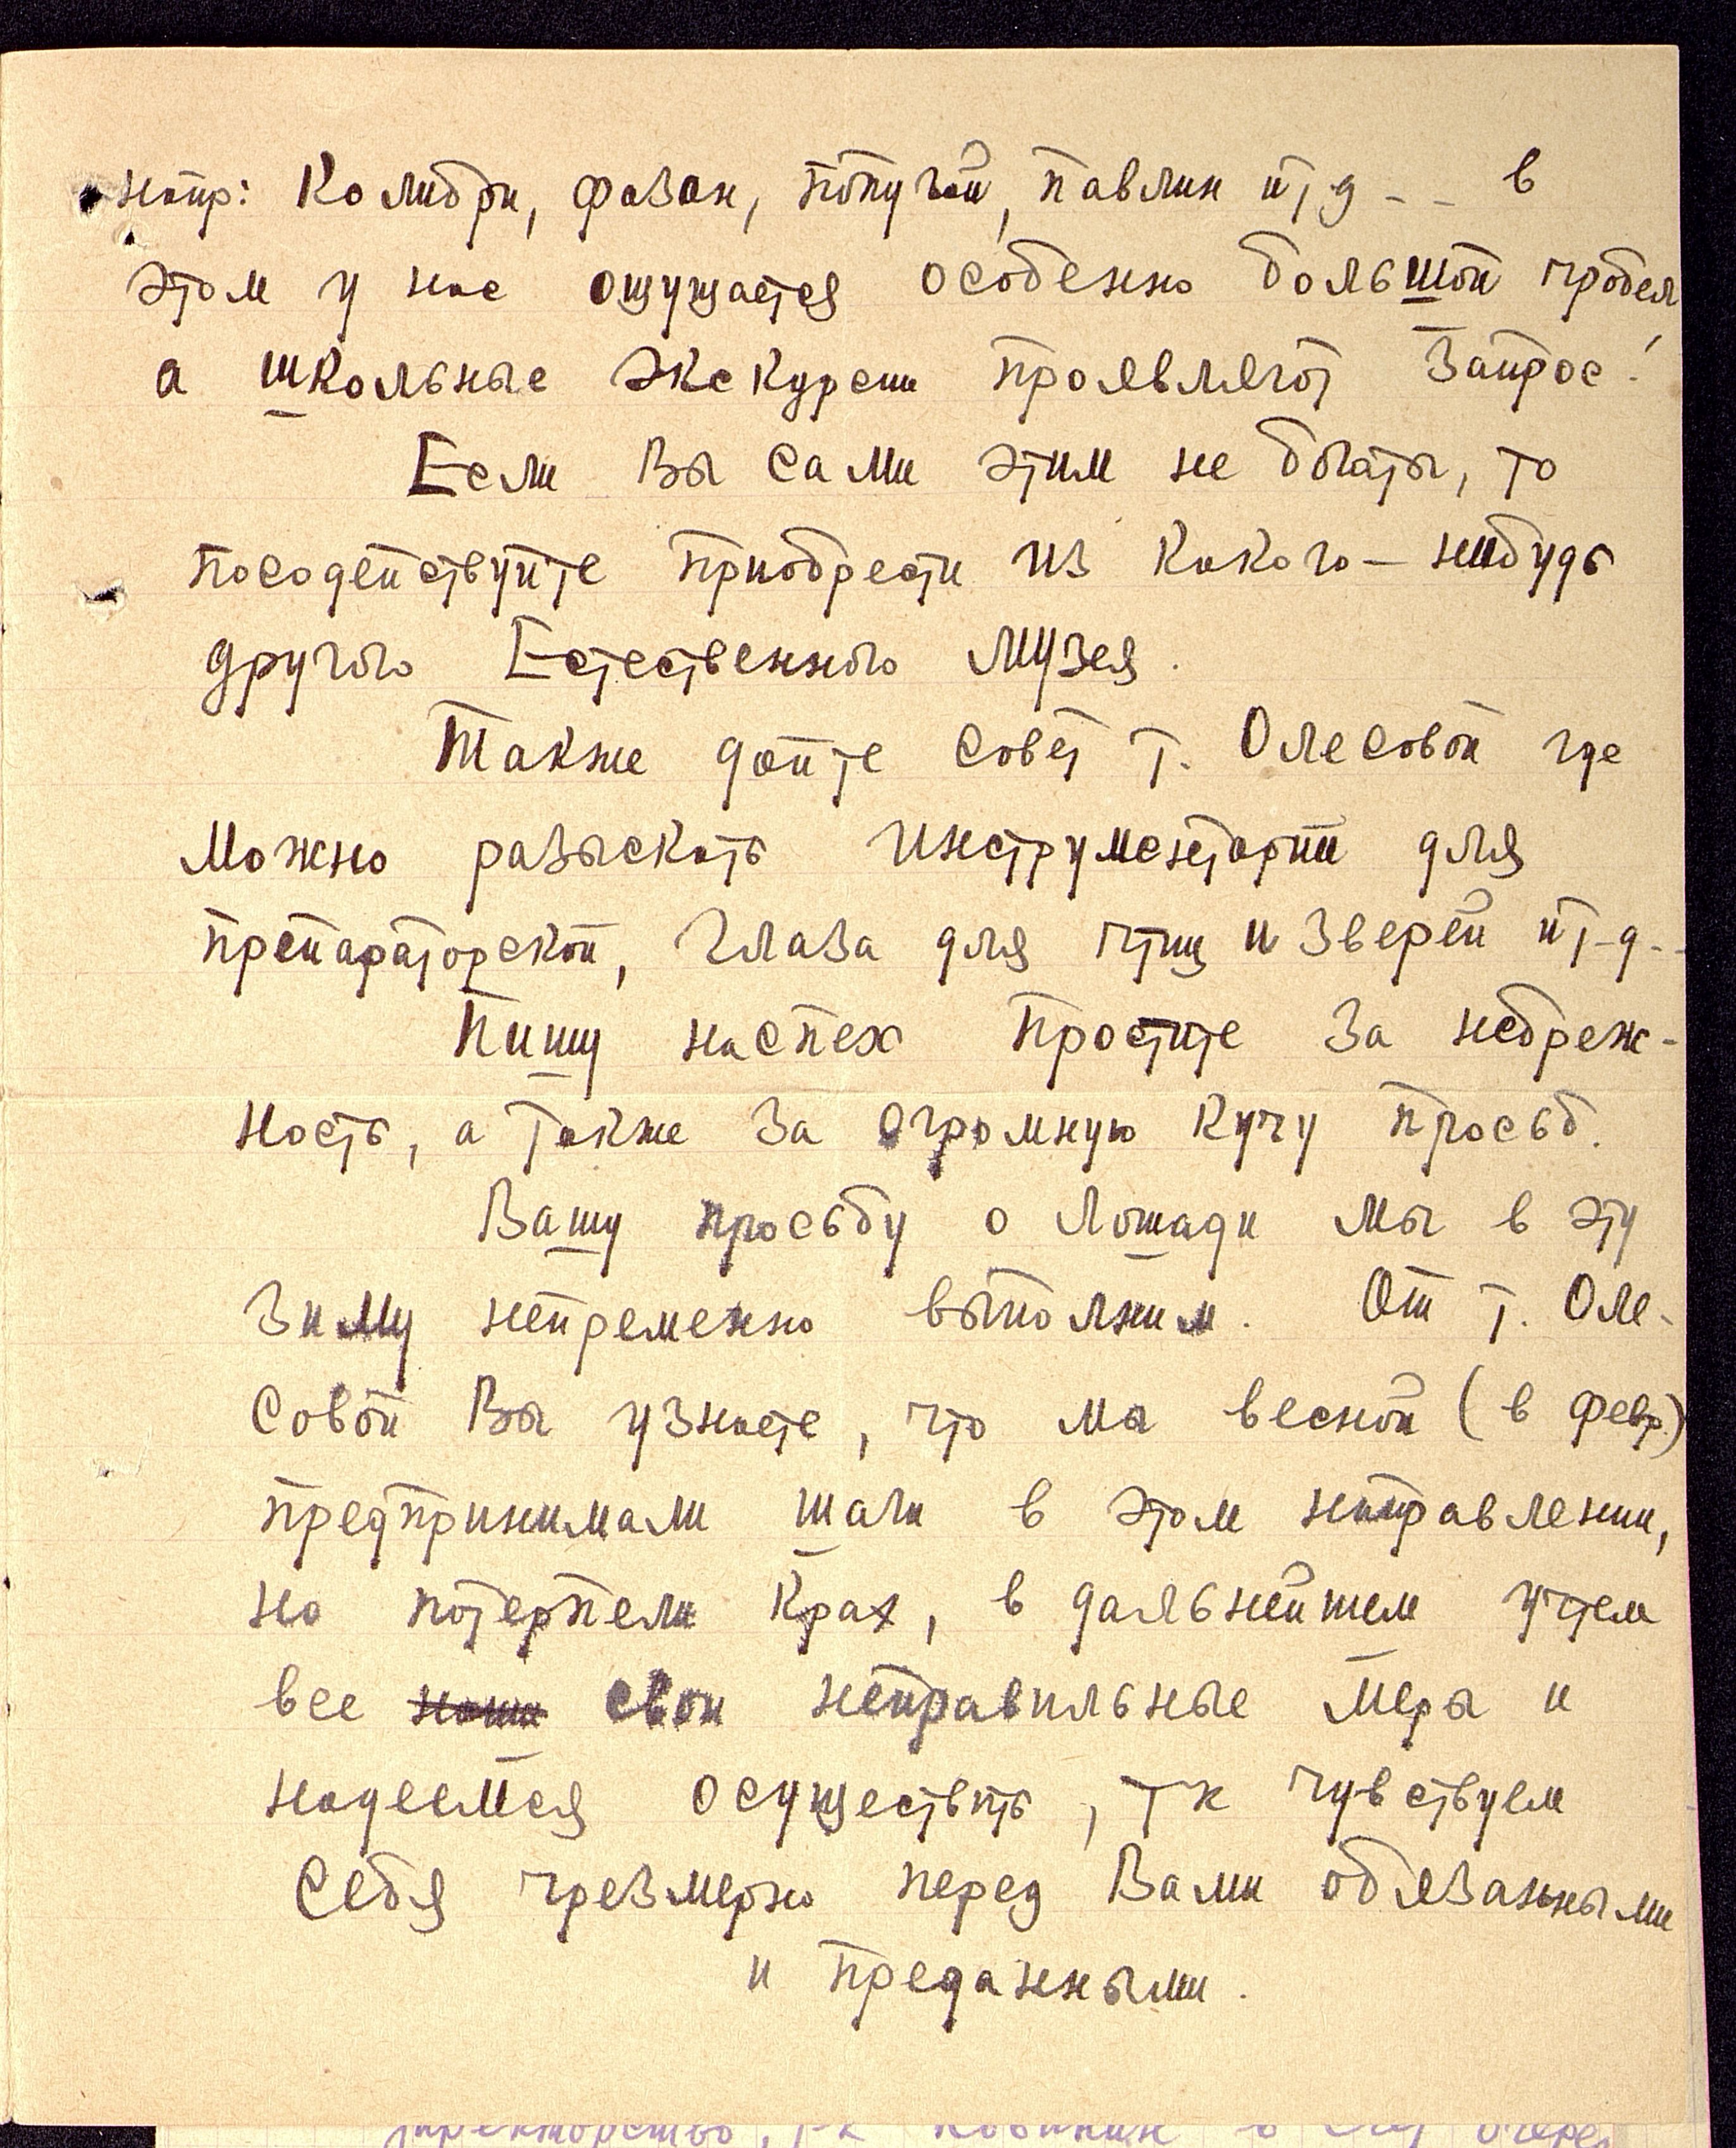 напр: Колибри, фазан, попугай, павлин и т д - - в
этом у нас ощущается особенно большой пробел
а школьные экскурсии проявляют запрос!
Если Вы сами этим не богаты, то
посодействуйте приобрести из какого-нибудь
другого Естественного музея.
Также дайте совет т. Олесовой где
можно разыскать инструментарий для
препараторской, глаза для птиц и зверей и т-д--
Пишу наспех простите за небреж-
ность, а также за огромную кучу просьб.
Вашу просьбу о лошади мы в эту
зиму непременно выполним. От т. Оле-
совой Вы узнаете, что мы весной (в февр.)
предпринимали шаги в этом направлении,
но потерпели крах, в дальнейшем учтем
все наши свои неправильные меры и
надеемся осуществить, т к чувствуем
себя чрезмерно перед Вами обязанными
и преданными.
директорство, т к